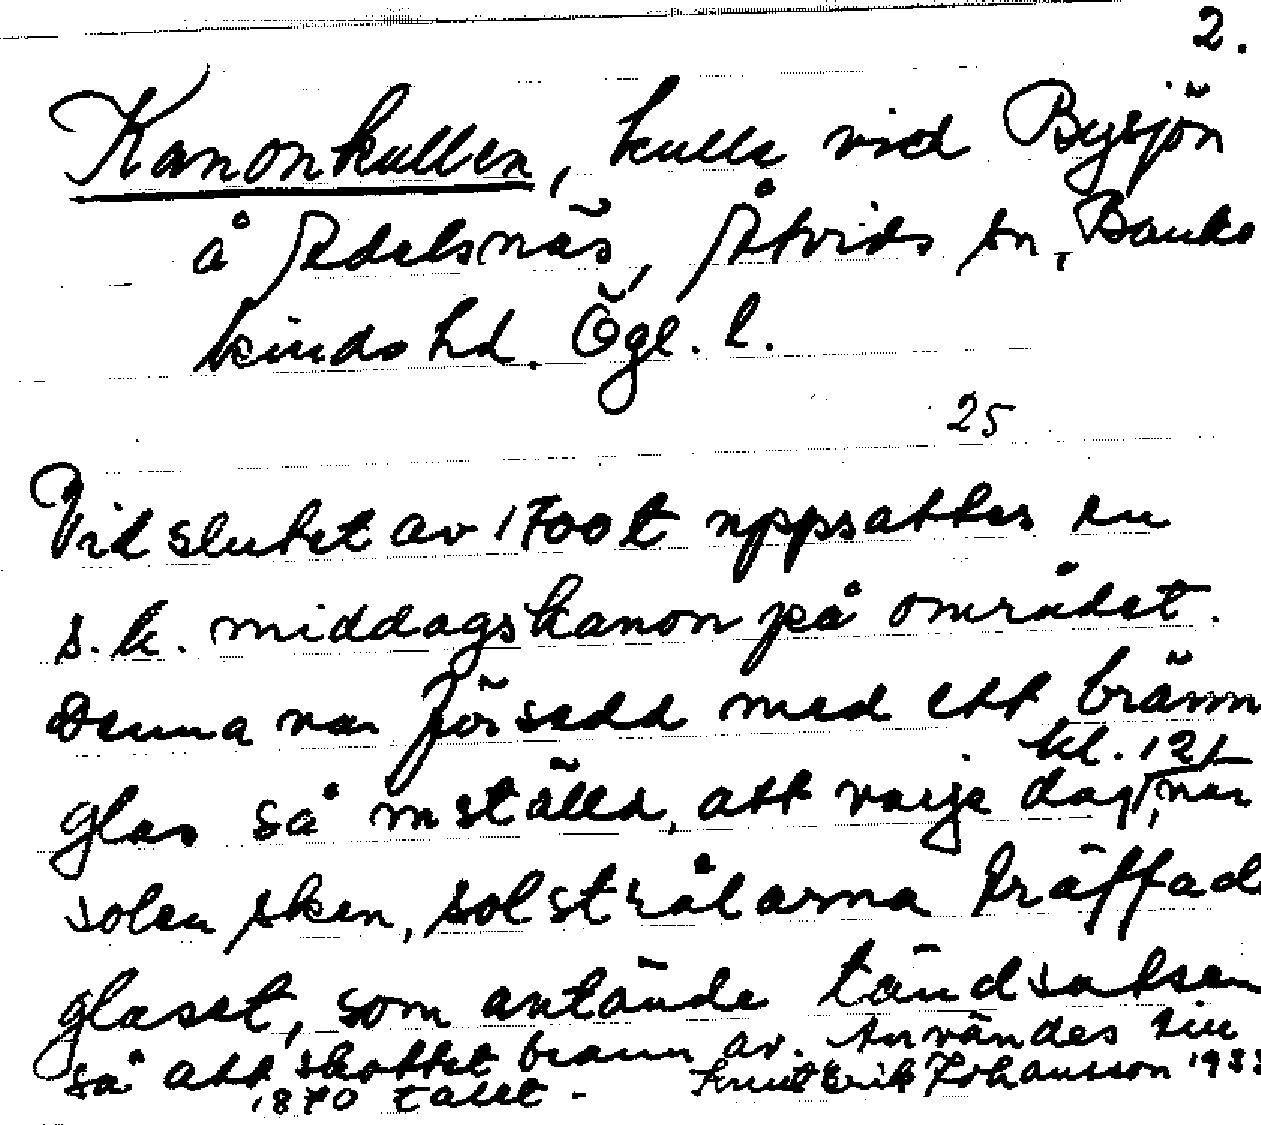 2.
Kanonkullen, kulle vid Bysjön
å Adelsnäs, Åtvids sn, Banke
kinds hd. Ögl. l.
25
Vid slutet av 1700 t uppsattes en
s.k. middagskanon på området.
Denna var försedd med ett bränn
kl. 12,
glas så inställd, att varje dag, när
solen sken, solstrålarna träffade
glaset, som antände tändsatsen
så att skottet brann av. Användes till
1870 talet. Knut Erik Johansson 1933